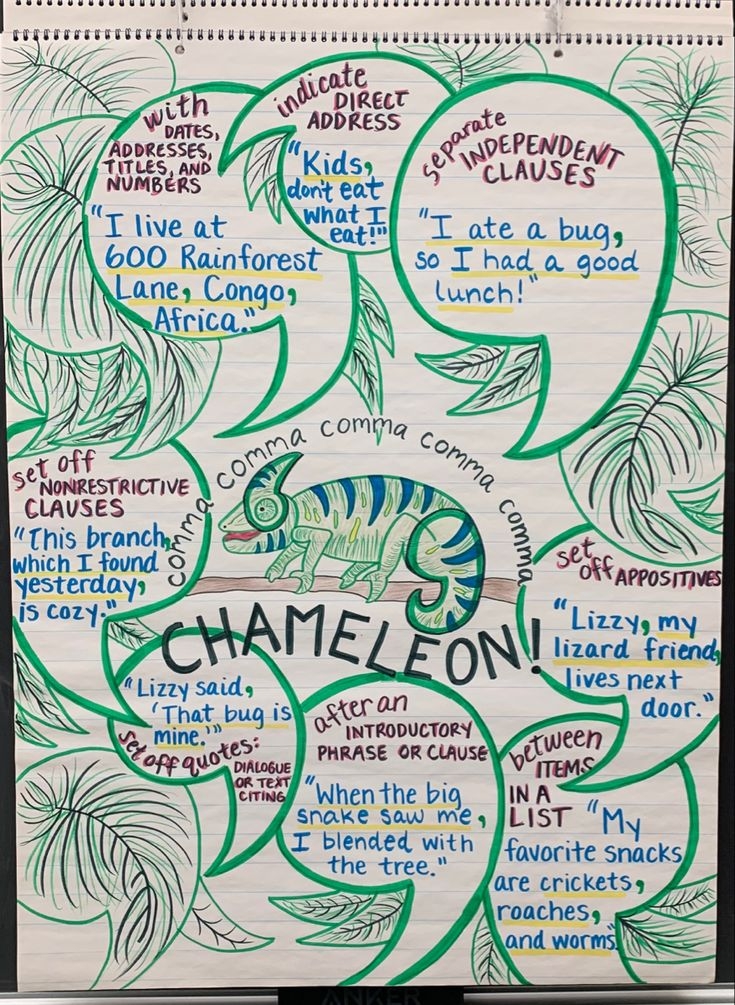 with
DATES,
ADDRESSES,
TITLES, AND
NUMBERS
"I live at
600 Rainforest
Lane, Congo,
Africa."
indicate
DIRECT
ADDRESS
"Kids,
don't eat
what I
eat!"
separate
INDEPENDENT
CLAUSES
"I ate a bug,
so I had a good
lunch!"
comma comma comma comma comma
CHAMELEON!
set off
NONRESTRICTIVE
CLAUSES
"This branch,
which I found
yesterday,
is cozy."
set
off APPOSITIVES
"Lizzy, my
lizard friend,
lives next
door."
"Lizzy said,
'That bug is
mine.'"
set off quotes:
DIALOGUE
OR TEXT
CITING
after an
INTRODUCTORY
PHRASE OR CLAUSE
"When the big
snake saw me,
I blended with
the tree."
between
ITEMS
IN A
LIST
"My
favorite snacks
are crickets,
roaches,
and worms."
ANKER